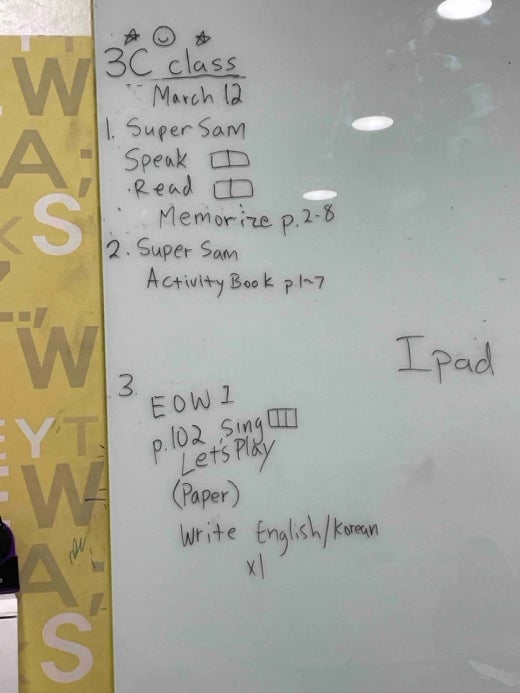 3C class
March 12
1. Super Sam
Speak
Read
Memorize p.2-8
2. Super Sam
Activity Book p.1~7
Ipad
3.
EOW 1
p.102 Sing
Let's Play
(Paper)
Write English/Korean
x1